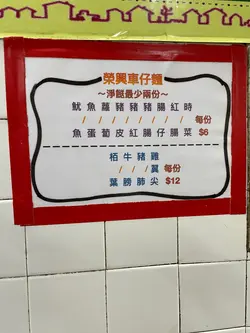 榮興車仔麵
～淨餸最少兩份～
魷魚蘿豬豬豬腸紅時
/ / / / / / / / / 每份
魚蛋蔔皮紅腸仔腸菜 $6
栢牛豬雞
/ / / 翼 每份
葉膀肺尖 $12